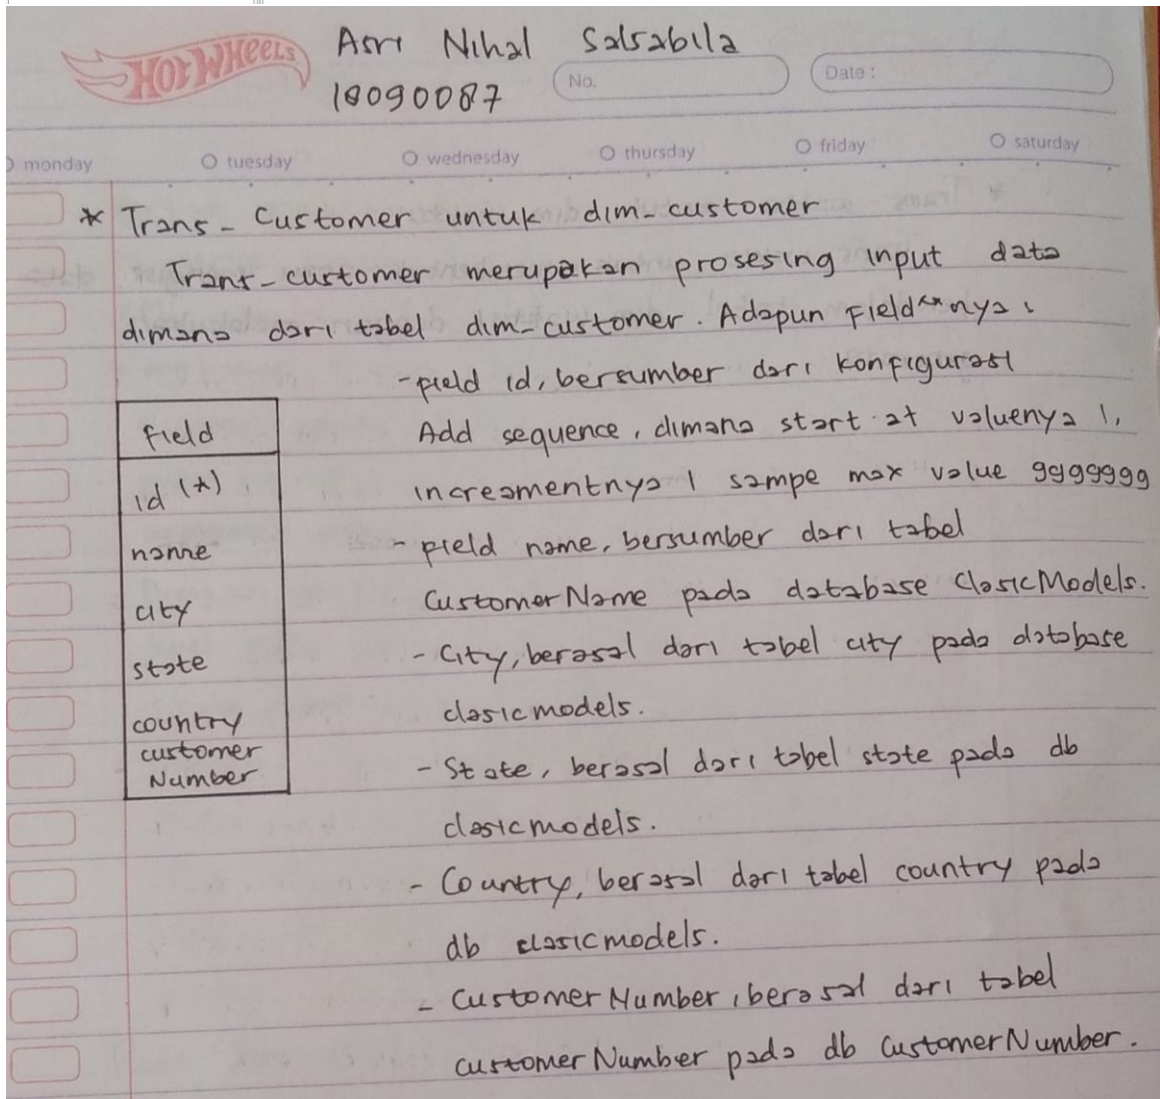 HOT WHEELS
Asri Nihal Salsabila
18090087
No.
Date :
monday tuesday wednesday thursday friday saturday
* Trans - Customer untuk dim - customer
Trans - customer merupakan prosesing input data
dimana dari tabel dim - customer. Adapun Field nya :
- field id, bersumber dari konfigurasi
Add sequence, dimana start at valuenya 1,
increamentnya 1 sampe max value 9999999
- field name, bersumber dari tabel
CustomerName pada database ClasicModels.
- City, berasal dari tabel city pada database
clasicmodels.
- State, berasal dari tabel state pada db
clasicmodels.
- Country, berasal dari tabel country pada
db clasicmodels.
- CustomerNumber, berasal dari tabel
customerNumber pada db CustomerNumber.
field
id (*)
name
city
state
country
customer
Number